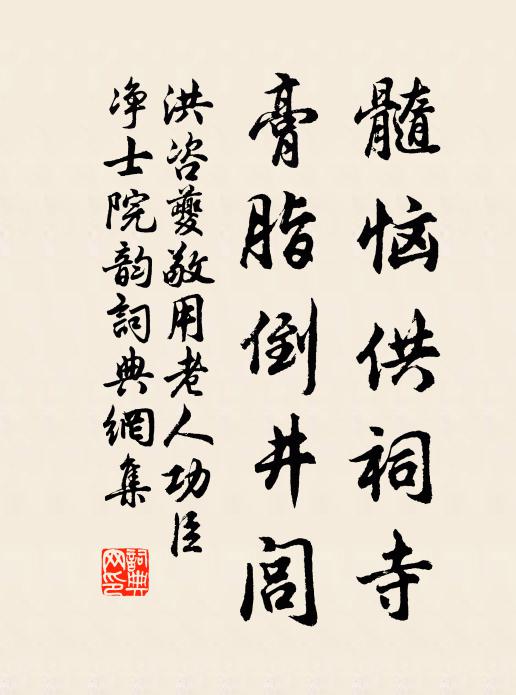 髓恼供祠寺
膏脂倒井闾
洪咨夔敬用老人功臣
净士院韵詞典網集
詞典网印